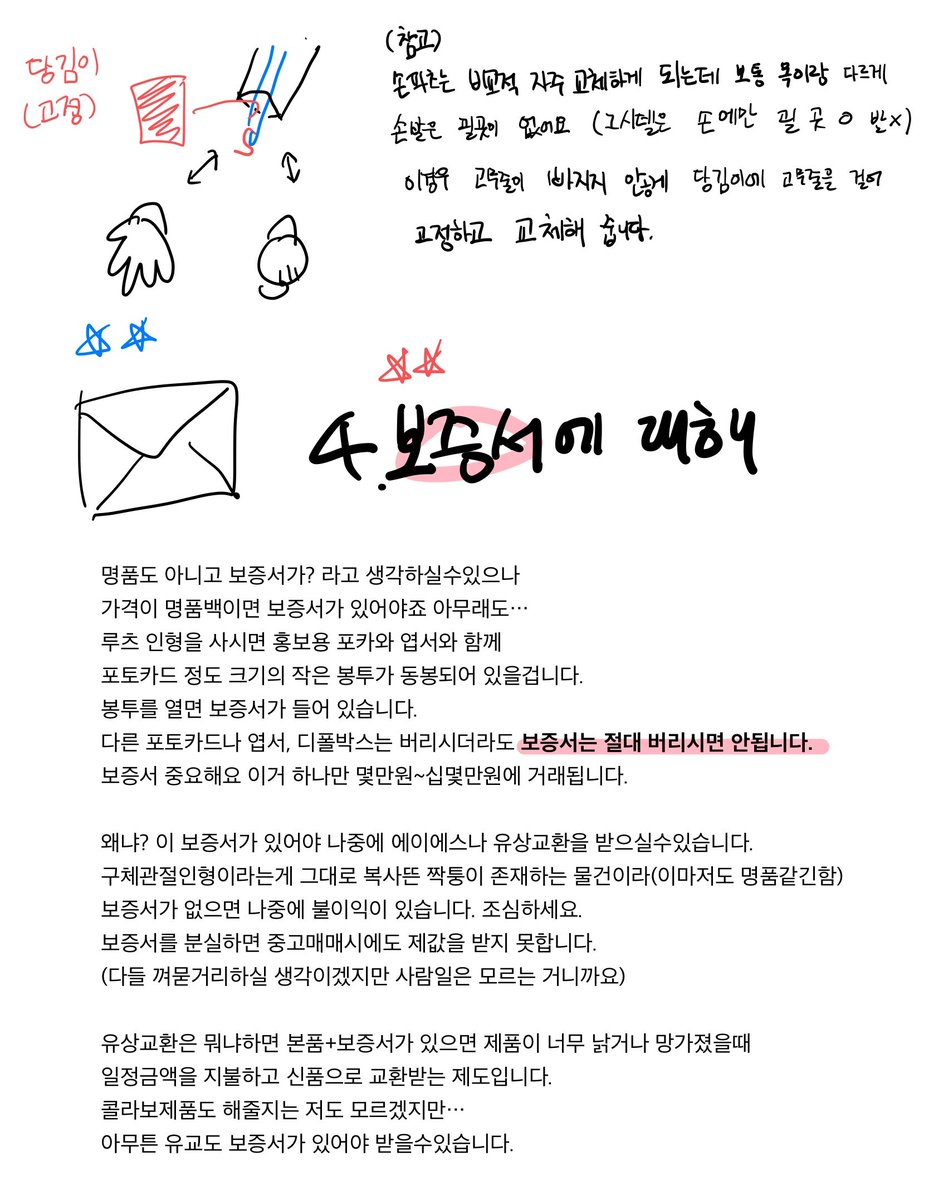 당김이
(고정)
(참고)
손파츠는 비교적 자주 교체하게 되는데 보통 목이랑 다르게
손발은 낄곳이 없어요 (그시델은 손에만 낄 곳 O 발X)
이경우 고무줄이 빠지지 않게 당김이에 고무줄을 걸어
고정하고 교체해 줍니다.
4. 보증서에 대해
명품도 아니고 보증서가? 라고 생각하실수있으나
가격이 명품백이면 보증서가 있어야죠 아무래도…
루츠 인형을 사시면 홍보용 포카와 엽서와 함께
포토카드 정도 크기의 작은 봉투가 동봉되어 있을겁니다.
봉투를 열면 보증서가 들어 있습니다.
다른 포토카드나 엽서, 디폴박스는 버리시더라도 보증서는 절대 버리시면 안됩니다.
보증서 중요해요 이거 하나만 몇만원~십몇만원에 거래됩니다.
왜냐? 이 보증서가 있어야 나중에 에이에스나 유상교환을 받으실수있습니다.
구체관절인형이라는게 그대로 복사뜬 짝퉁이 존재하는 물건이라(이마저도 명품같긴함)
보증서가 없으면 나중에 불이익이 있습니다. 조심하세요.
보증서를 분실하면 중고매매시에도 제값을 받지 못합니다.
(다들 껴묻거리하실 생각이겠지만 사람일은 모르는 거니까요)
유상교환은 뭐냐하면 본품+보증서가 있으면 제품이 너무 낡거나 망가졌을때
일정금액을 지불하고 신품으로 교환받는 제도입니다.
콜라보제품도 해줄지는 저도 모르겠지만…
아무튼 유교도 보증서가 있어야 받을수있습니다.